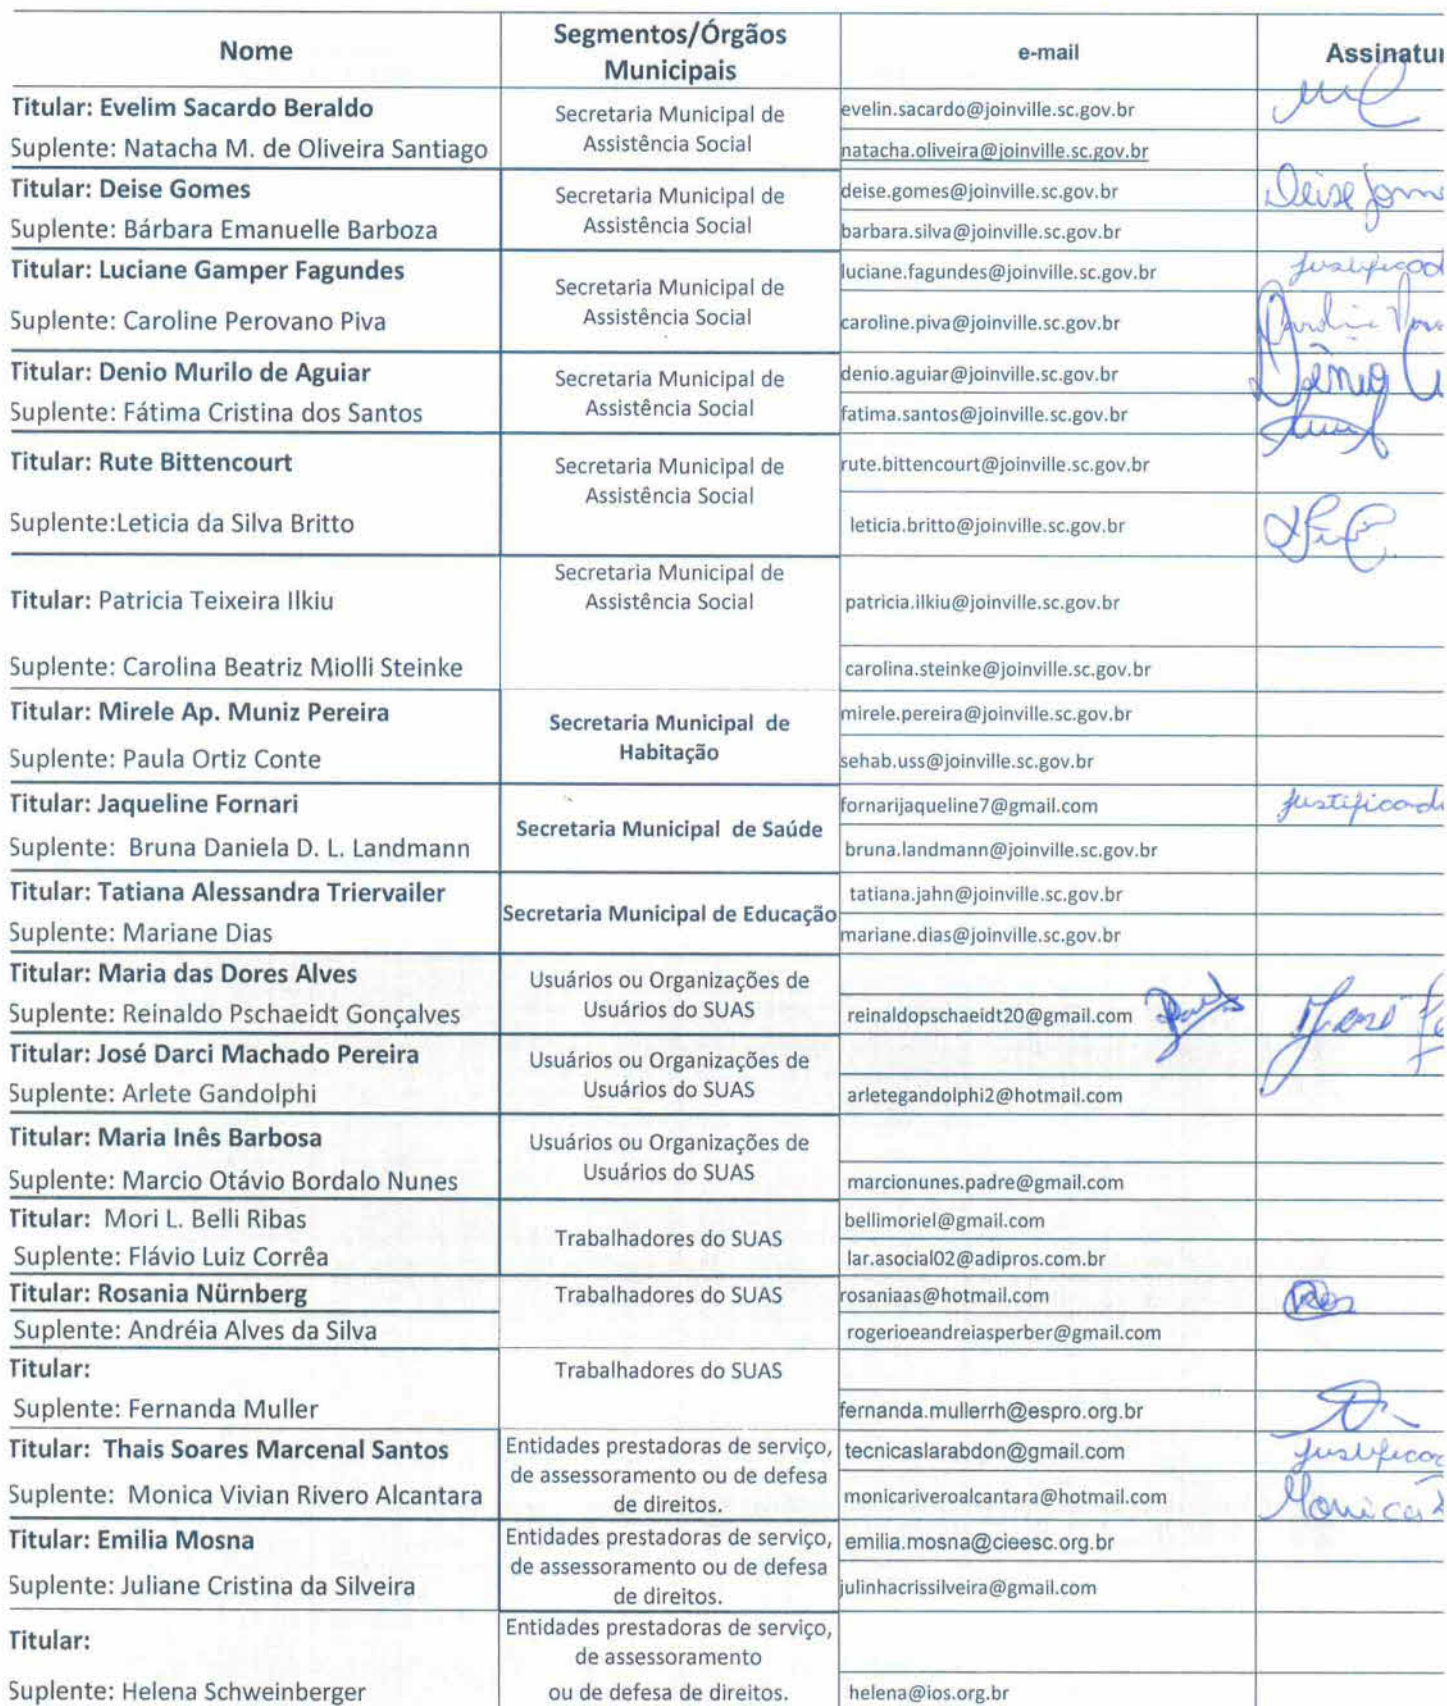 Nome
Segmentos/Órgãos
Municipais
e-mail
Assinatur
Titular: Evelim Sacardo Beraldo
Secretaria Municipal de
Assistência Social
evelin.sacardo@joinville.sc.gov.br
Suplente: Natacha M. de Oliveira Santiago
natacha.oliveira@joinville.sc.gov.br
Titular: Deise Gomes
Secretaria Municipal de
Assistência Social
deise.gomes@joinville.sc.gov.br
Deise Gome
Suplente: Bárbara Emanuelle Barboza
barbara.silva@joinville.sc.gov.br
Titular: Luciane Gamper Fagundes
Secretaria Municipal de
Assistência Social
luciane.fagundes@joinville.sc.gov.br
justificad
Suplente: Caroline Perovano Piva
caroline.piva@joinville.sc.gov.br
Titular: Denio Murilo de Aguiar
Secretaria Municipal de
Assistência Social
denio.aguiar@joinville.sc.gov.br
Dênio
Suplente: Fátima Cristina dos Santos
fatima.santos@joinville.sc.gov.br
Titular: Rute Bittencourt
Secretaria Municipal de
Assistência Social
rute.bittencourt@joinville.sc.gov.br
Suplente:Leticia da Silva Britto
leticia.britto@joinville.sc.gov.br
Titular: Patricia Teixeira Ilkiu
Secretaria Municipal de
Assistência Social
patricia.ilkiu@joinville.sc.gov.br
Suplente: Carolina Beatriz Miolli Steinke
carolina.steinke@joinville.sc.gov.br
Titular: Mirele Ap. Muniz Pereira
Secretaria Municipal de
Habitação
mirele.pereira@joinville.sc.gov.br
Suplente: Paula Ortiz Conte
sehab.uss@joinville.sc.gov.br
Titular: Jaqueline Fornari
Secretaria Municipal de Saúde
fornarijaqueline7@gmail.com
justificad
Suplente: Bruna Daniela D. L. Landmann
bruna.landmann@joinville.sc.gov.br
Titular: Tatiana Alessandra Triervailer
Secretaria Municipal de Educação
tatiana.jahn@joinville.sc.gov.br
Suplente: Mariane Dias
mariane.dias@joinville.sc.gov.br
Titular: Maria das Dores Alves
Usuários ou Organizações de
Usuários do SUAS
Suplente: Reinaldo Pschaeidt Gonçalves
reinaldopschaeidt20@gmail.com
Titular: José Darci Machado Pereira
Usuários ou Organizações de
Usuários do SUAS
Suplente: Arlete Gandolphi
arletegandolphi2@hotmail.com
Titular: Maria Inês Barbosa
Usuários ou Organizações de
Usuários do SUAS
Suplente: Marcio Otávio Bordalo Nunes
marcionunes.padre@gmail.com
Titular: Mori L. Belli Ribas
Trabalhadores do SUAS
bellimoriel@gmail.com
Suplente: Flávio Luiz Corrêa
lar.asocial02@adipros.com.br
Titular: Rosania Nürnberg
Trabalhadores do SUAS
rosaniaas@hotmail.com
Suplente: Andréia Alves da Silva
rogerioeandreiasperber@gmail.com
Titular:
Trabalhadores do SUAS
Suplente: Fernanda Muller
fernanda.mullerrh@espro.org.br
Titular: Thais Soares Marcenal Santos
Entidades prestadoras de serviço,
de assessoramento ou de defesa
de direitos.
tecnicaslarabdon@gmail.com
justificad
Suplente: Monica Vivian Rivero Alcantara
monicariveroalcantara@hotmail.com
Monica
Titular: Emilia Mosna
Entidades prestadoras de serviço,
de assessoramento ou de defesa
de direitos.
emilia.mosna@cieesc.org.br
Suplente: Juliane Cristina da Silveira
julinhacrissilveira@gmail.com
Titular:
Entidades prestadoras de serviço,
de assessoramento
ou de defesa de direitos.
Suplente: Helena Schweinberger
helena@ios.org.br